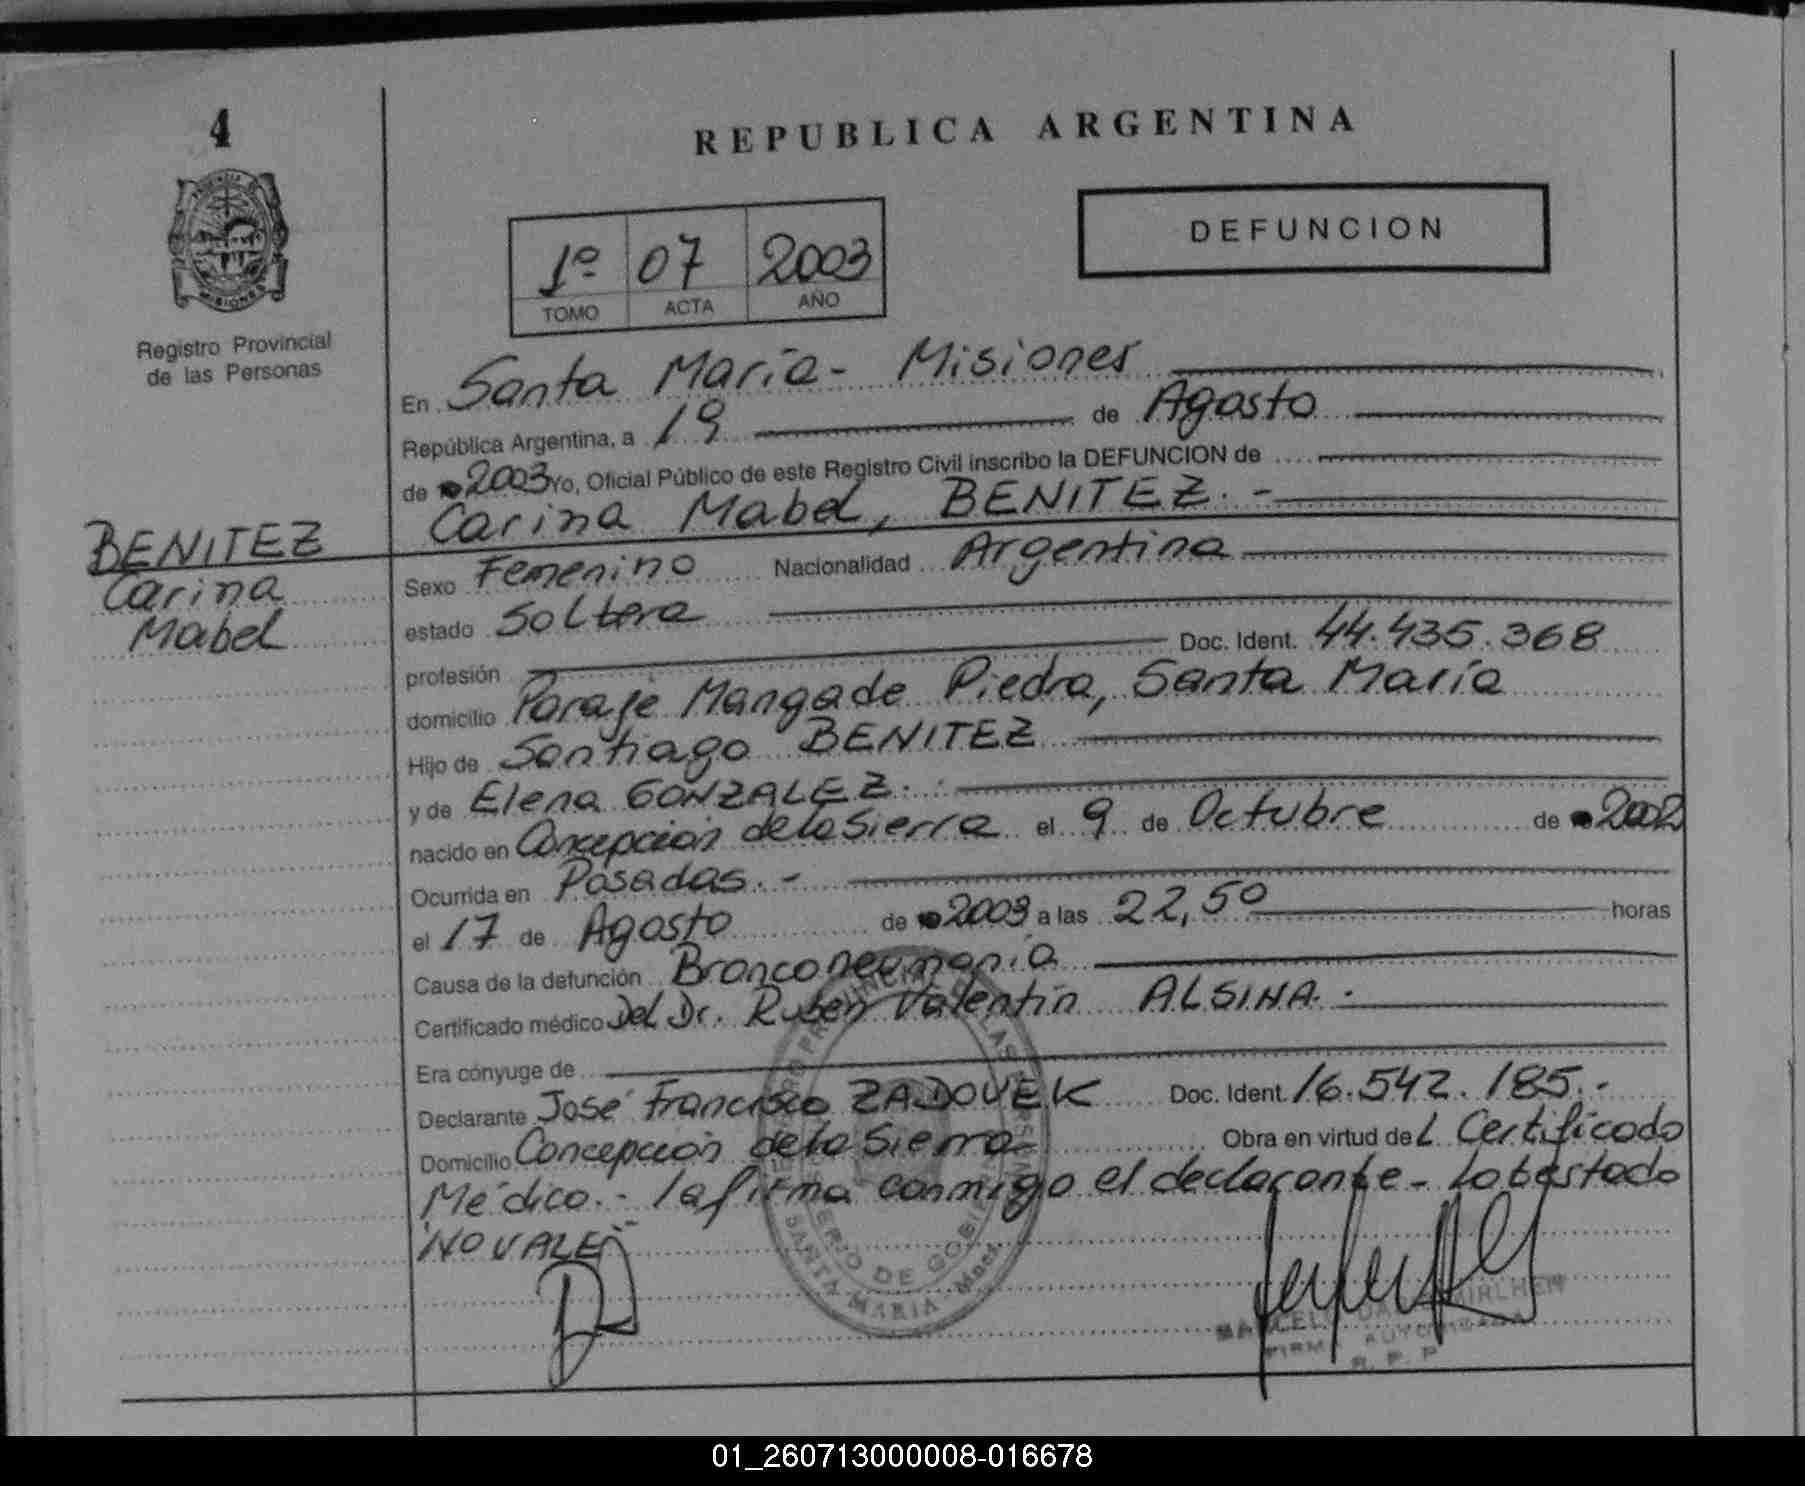 4
REPUBLICA ARGENTINA
PROVINCIA DE
MISIONES
Registro Provincial
de las Personas
1º 07 2003
TOMO ACTA AÑO
DEFUNCION
En Santa María- Misiones
República Argentina, a 19 de Agosto
de 2003 Yo, Oficial Público de este Registro Civil inscribo la DEFUNCION de
Carina Mabel, BENITEZ.-
BENITEZ
Carina
Mabel
Sexo Femenino Nacionalidad Argentina
estado Soltera
profesión Doc. Ident. 44.435.368
domicilio Paraje Mangade Piedra, Santa María
Hijo de Santiago BENITEZ
y de Elena GONZALEZ.
nacido en Concepción de la Sierra el 9 de Octubre de 2002
Ocurrida en Posadas.-
el 17 de Agosto de 2003 a las 22,50 horas
Causa de la defunción Bronconeumonia
Certificado médico Del Dr. Ruben Valentín ALSINA.-
Era cónyuge de
Declarante José Francisco ZADOVEK Doc. Ident. 16.542.185.-
Domicilio Concepción de la Sierra Obra en virtud del Certificado
Médico.- la firma conmigo el declarante- lo testado
"NO VALE"
SANTA MARIA
FIRMA AUTORIZADA
R. P. P.
01_260713000008-016678